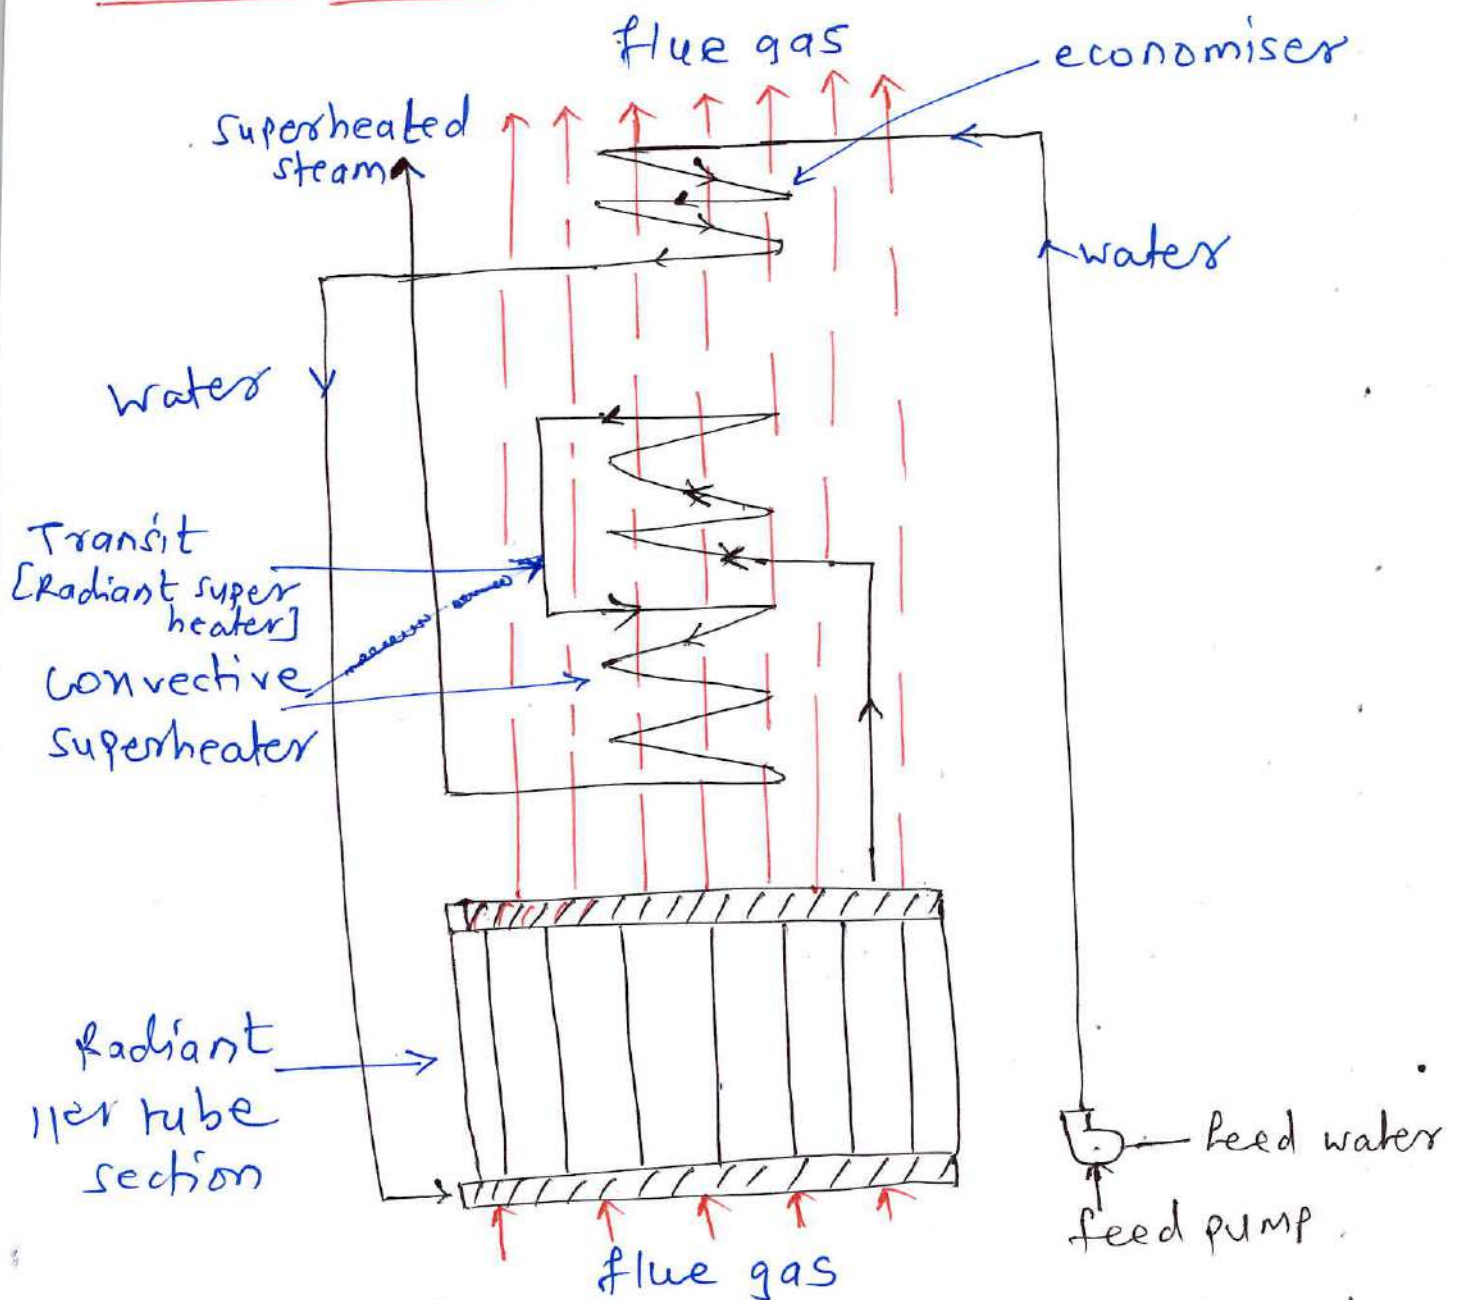 flue gas
economiser
superheated
steam
water
water
Transit
[Radiant super
heater]
convective
superheater
Radiant
11er tube
section
feed water
feed pump
flue gas